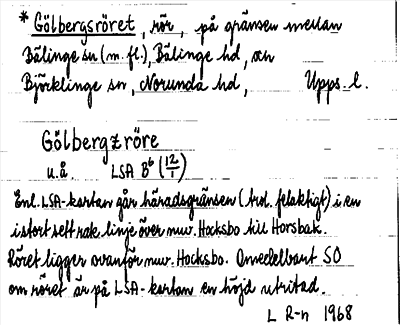 * Gölbergsröret, rör, på gränsen mellan
Bälinge sn (m. fl.), Bälinge hd, och
Björklinge sn, Norunda hd, Upps. l.
Gölbergzröre
u.å. LSA B6 (12/1)
Enl. LSA-kartan går häradsgränsen (trol. felaktigt) i en
i stort sett rak linje över nuv. Hocksbo till Horsbäk.
Röret ligger ovanför nuv. Hocksbo. Omedelbart SO
om röret är på LSA-kartan en höjd utritad.
L R-n 1968